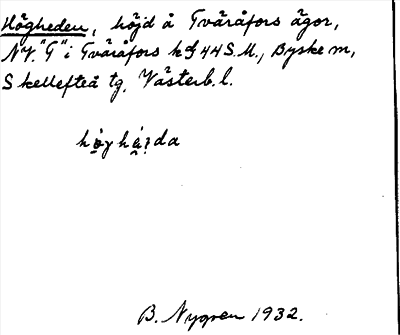 Högheden, höjd å Tväråfors ägor,
NV. "T" i Tväråfors k bl 44 S.M., Byske m,
Skellefteå tg. Västerb. l.
B. Nygren 1932.